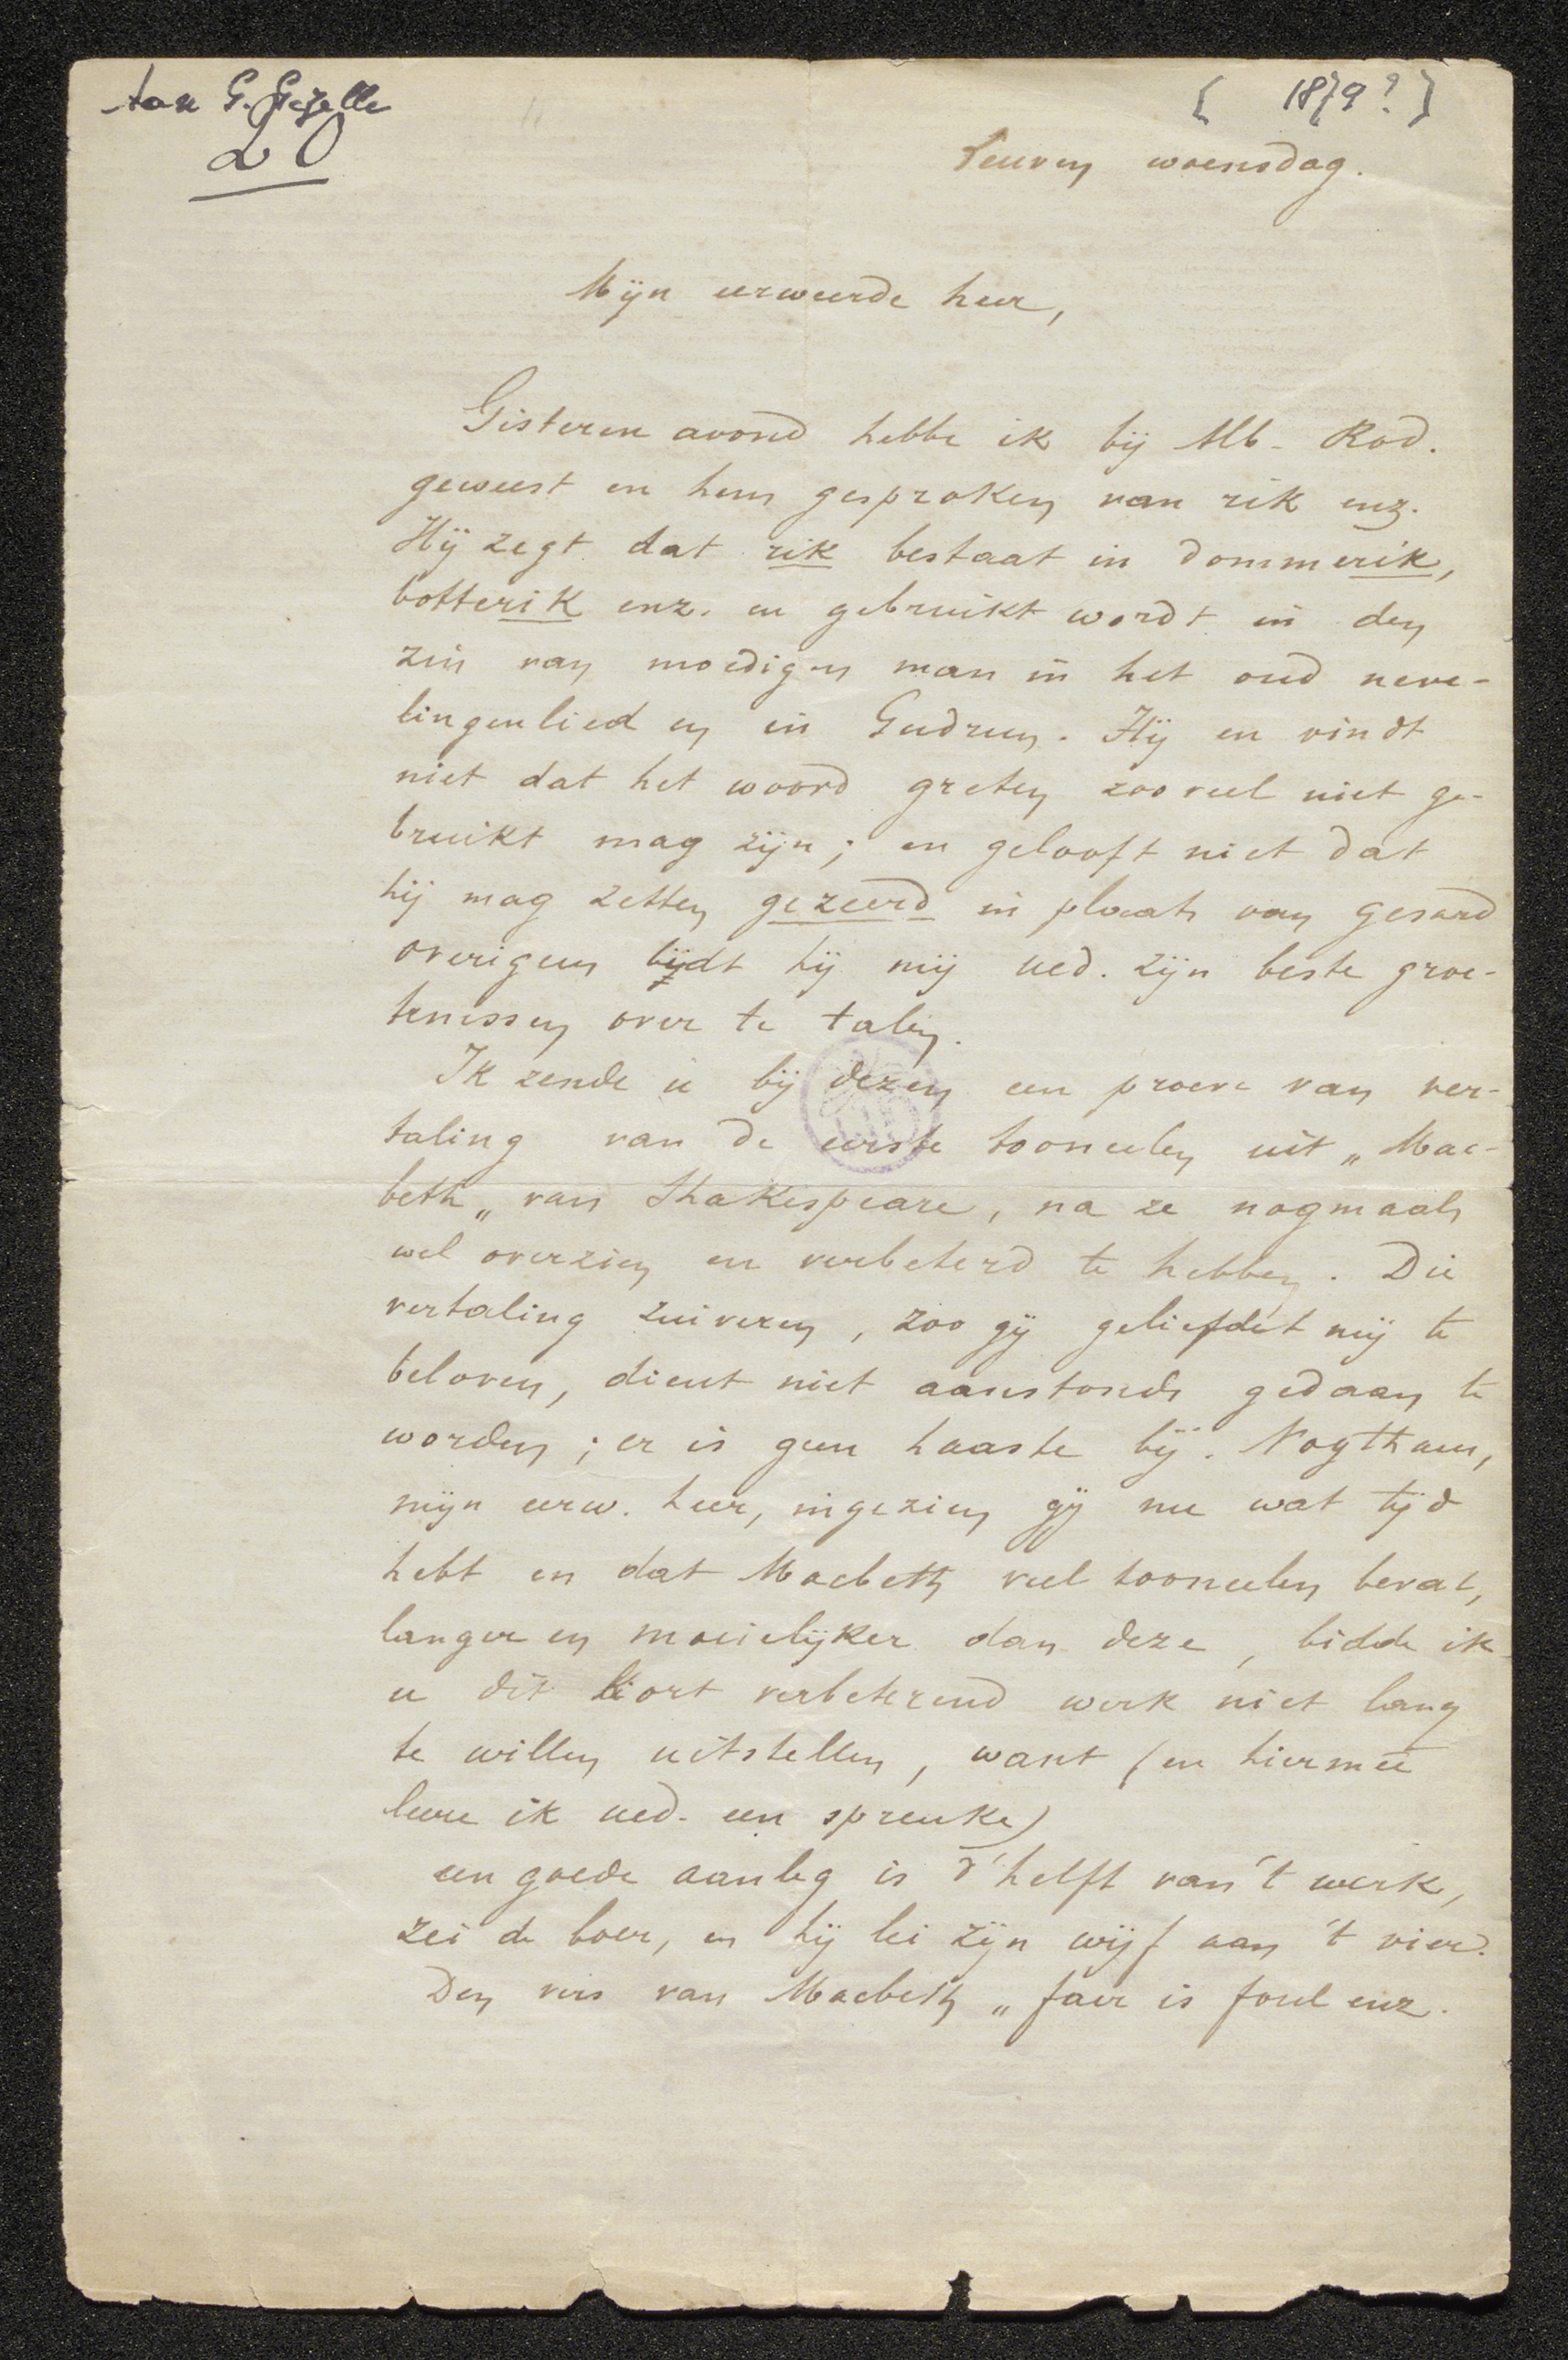 Aan G. Gezelle
20
[ 1879? ]
Leuven woensdag.
Mijn eerweerde heer,
Gisteren avond hebbe ik bij Alb. Rod.
geweest en hem gesproken van rik enz.
Hij zegt dat rik bestaat in dommerik,
botterik enz. en gebruikt wordt in den
zin van moedigen man in het oud neve-
lingenlied en in Gudrun. Hij en vindt
niet dat het woord greten zooveel niet ge-
bruikt mag zijn; en gelooft niet dat
hij mag zetten gezeerd in plaats van gesard
overigens bidt hij mij ued. zijn beste groe-
tenissen over te talen.
Ik zende u bij dezen een proeve van ver-
taling van de eerste tooneelen uit „Mac-
beth„ van Shakespeare, na ze nogmaals
wel overzien en verbeterd te hebben. Die
vertaling zuiveren, zoo gij geliefdet mij te
beloven, dient niet aanstonds gedaan te
worden; er is geen haaste bij. Nogthans,
mijn eerw. heer, ingezien gij nu wat tijd
hebt en dat Macbeth veel tooneelen bevat,
langer en moeielijker dan deze, bidde ik
u dit kort verbeterend werk niet lang
te willen uitstellen, want (en hiermeê
leere ik ued. een spreuke)
een goede aanleg is d'helft van 't werk,
zei de boer, en hij lei zijn wijf aan 't vier.
Den vers van Macbeth „fair is foul enz.